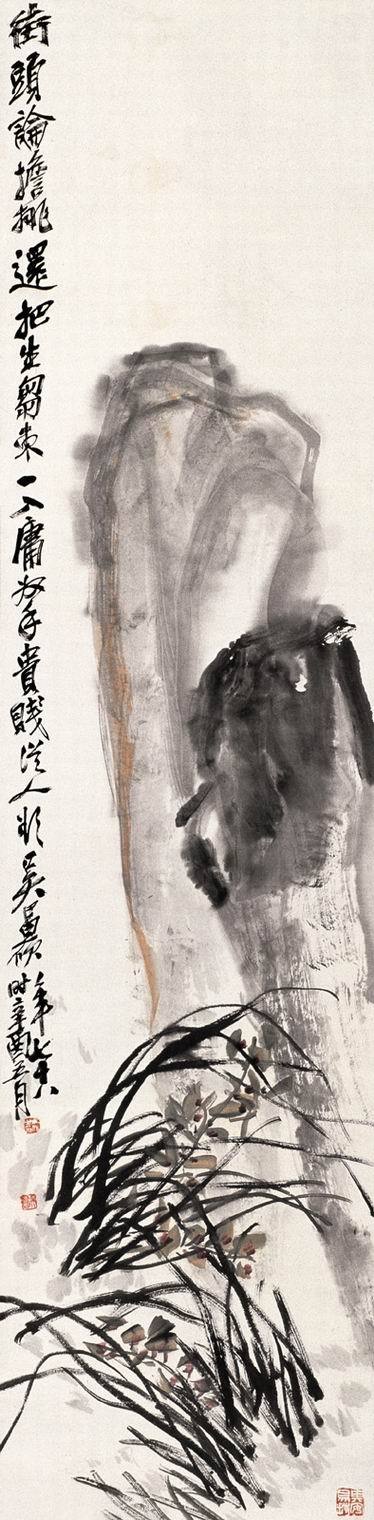 街頭論擔挑還把生芻束一入庸奴手貴賤從人吳昌碩
年七十八
時辛酉五月